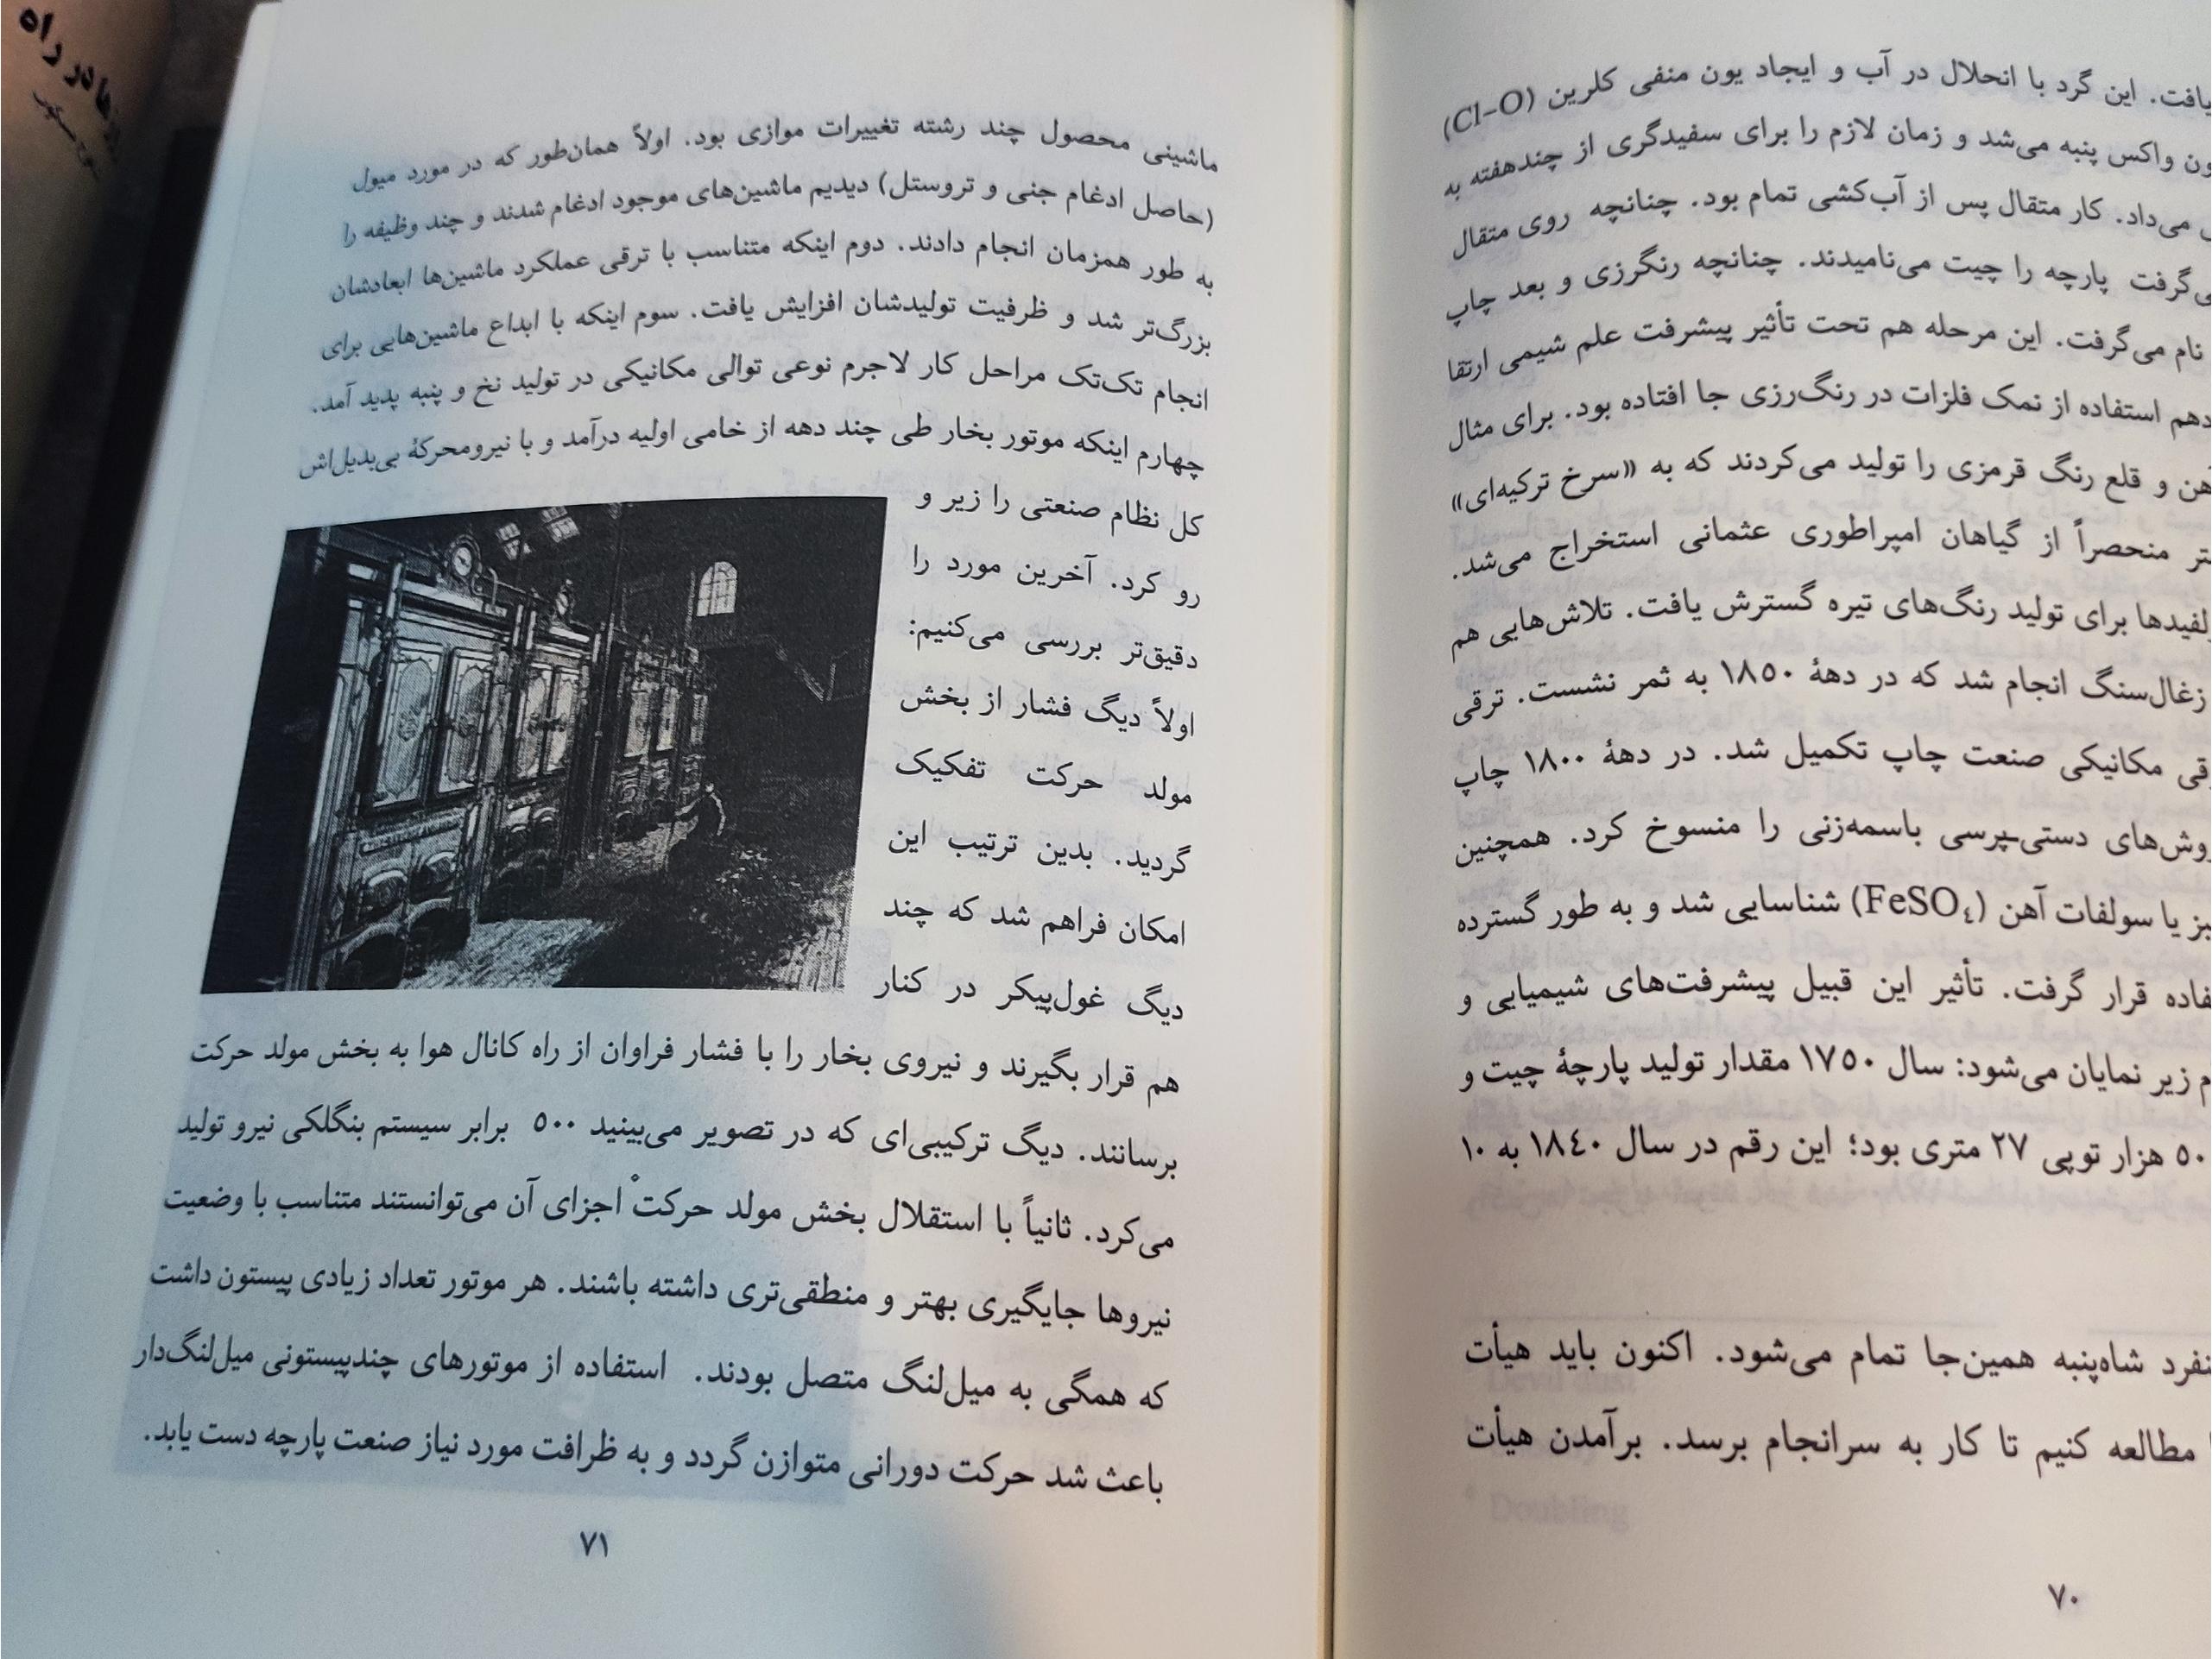 یافت. این گرد با انحلال در آب و ایجاد یون منفی کلرین (Cl-O)
ون واکس پنبه می‌شد و زمان لازم را برای سفیدگری از چندهفته به
می‌داد. کار متقال پس از آب‌کشی تمام بود. چنانچه روی متقال
می‌گرفت پارچه را چیت می‌نامیدند. چنانچه رنگرزی و بعد چاپ
نام می‌گرفت. این مرحله هم تحت تأثیر پیشرفت علم شیمی ارتقا
دهم استفاده از نمک فلزات در رنگ‌رزی جا افتاده بود. برای مثال
هن و قلع رنگ قرمزی را تولید می‌کردند که به «سرخ ترکیه‌ای»
تر منحصراً از گیاهان امپراطوری عثمانی استخراج می‌شد.
لفیدها برای تولید رنگ‌های تیره گسترش یافت. تلاش‌هایی هم
زغال‌سنگ انجام شد که در دههٔ ۱۸۵۰ به ثمر نشست. ترقی
قی مکانیکی صنعت چاپ تکمیل شد. در دههٔ ۱۸۰۰ چاپ
روش‌های دستی‌-پرسی باسمه‌زنی را منسوخ کرد. همچنین
بز یا سولفات آهن (FeSO₄) شناسایی شد و به طور گسترده
فاده قرار گرفت. تأثیر این قبیل پیشرفت‌های شیمیایی و
م زیر نمایان می‌شود: سال ۱۷۵۰ مقدار تولید پارچهٔ چیت و
۵۰ هزار توپی ۲۷ متری بود؛ این رقم در سال ۱۸٤۰ به ۱۰
نفرد شاه‌پنبه همین‌جا تمام می‌شود. اکنون باید هیأت
مطالعه کنیم تا کار به سرانجام برسد. برآمدن هیأت
۷۰
ماشینی محصول چند رشته تغییرات موازی بود. اولاً همان‌طور که در مورد میول
(حاصل ادغام جنی و تروستل) دیدیم ماشین‌های موجود ادغام شدند و چند وظیفه را
به طور همزمان انجام دادند. دوم اینکه متناسب با ترقی عملکرد ماشین‌ها ابعادشان
بزرگ‌تر شد و ظرفیت تولیدشان افزایش یافت. سوم اینکه با ابداع ماشین‌هایی برای
انجام تک‌تک مراحل کار لاجرم نوعی توالی مکانیکی در تولید نخ و پنبه پدید آمد.
چهارم اینکه موتور بخار طی چند دهه از خامی اولیه درآمد و با نیرومحرکهٔ بی‌بدیل‌اش
کل نظام صنعتی را زیر و
رو کرد. آخرین مورد را
دقیق‌تر بررسی می‌کنیم:
اولاً دیگ فشار از بخش
مولد حرکت تفکیک
گردید. بدین ترتیب این
امکان فراهم شد که چند
دیگ غول‌پیکر در کنار
هم قرار بگیرند و نیروی بخار را با فشار فراوان از راه کانال هوا به بخش مولد حرکت
برسانند. دیگ ترکیبی‌ای که در تصویر می‌بینید ۵۰۰ برابر سیستم بنگلکی نیرو تولید
می‌کرد. ثانیاً با استقلال بخش مولد حرکتْ اجزای آن می‌توانستند متناسب با وضعیت
نیروها جایگیری بهتر و منطقی‌تری داشته باشند. هر موتور تعداد زیادی پیستون داشت
که همگی به میل‌لنگ متصل بودند. استفاده از موتورهای چندپیستونی میل‌لنگ‌دار
باعث شد حرکت دورانی متوازن گردد و به ظرافت مورد نیاز صنعت پارچه دست یابد.
۷۱